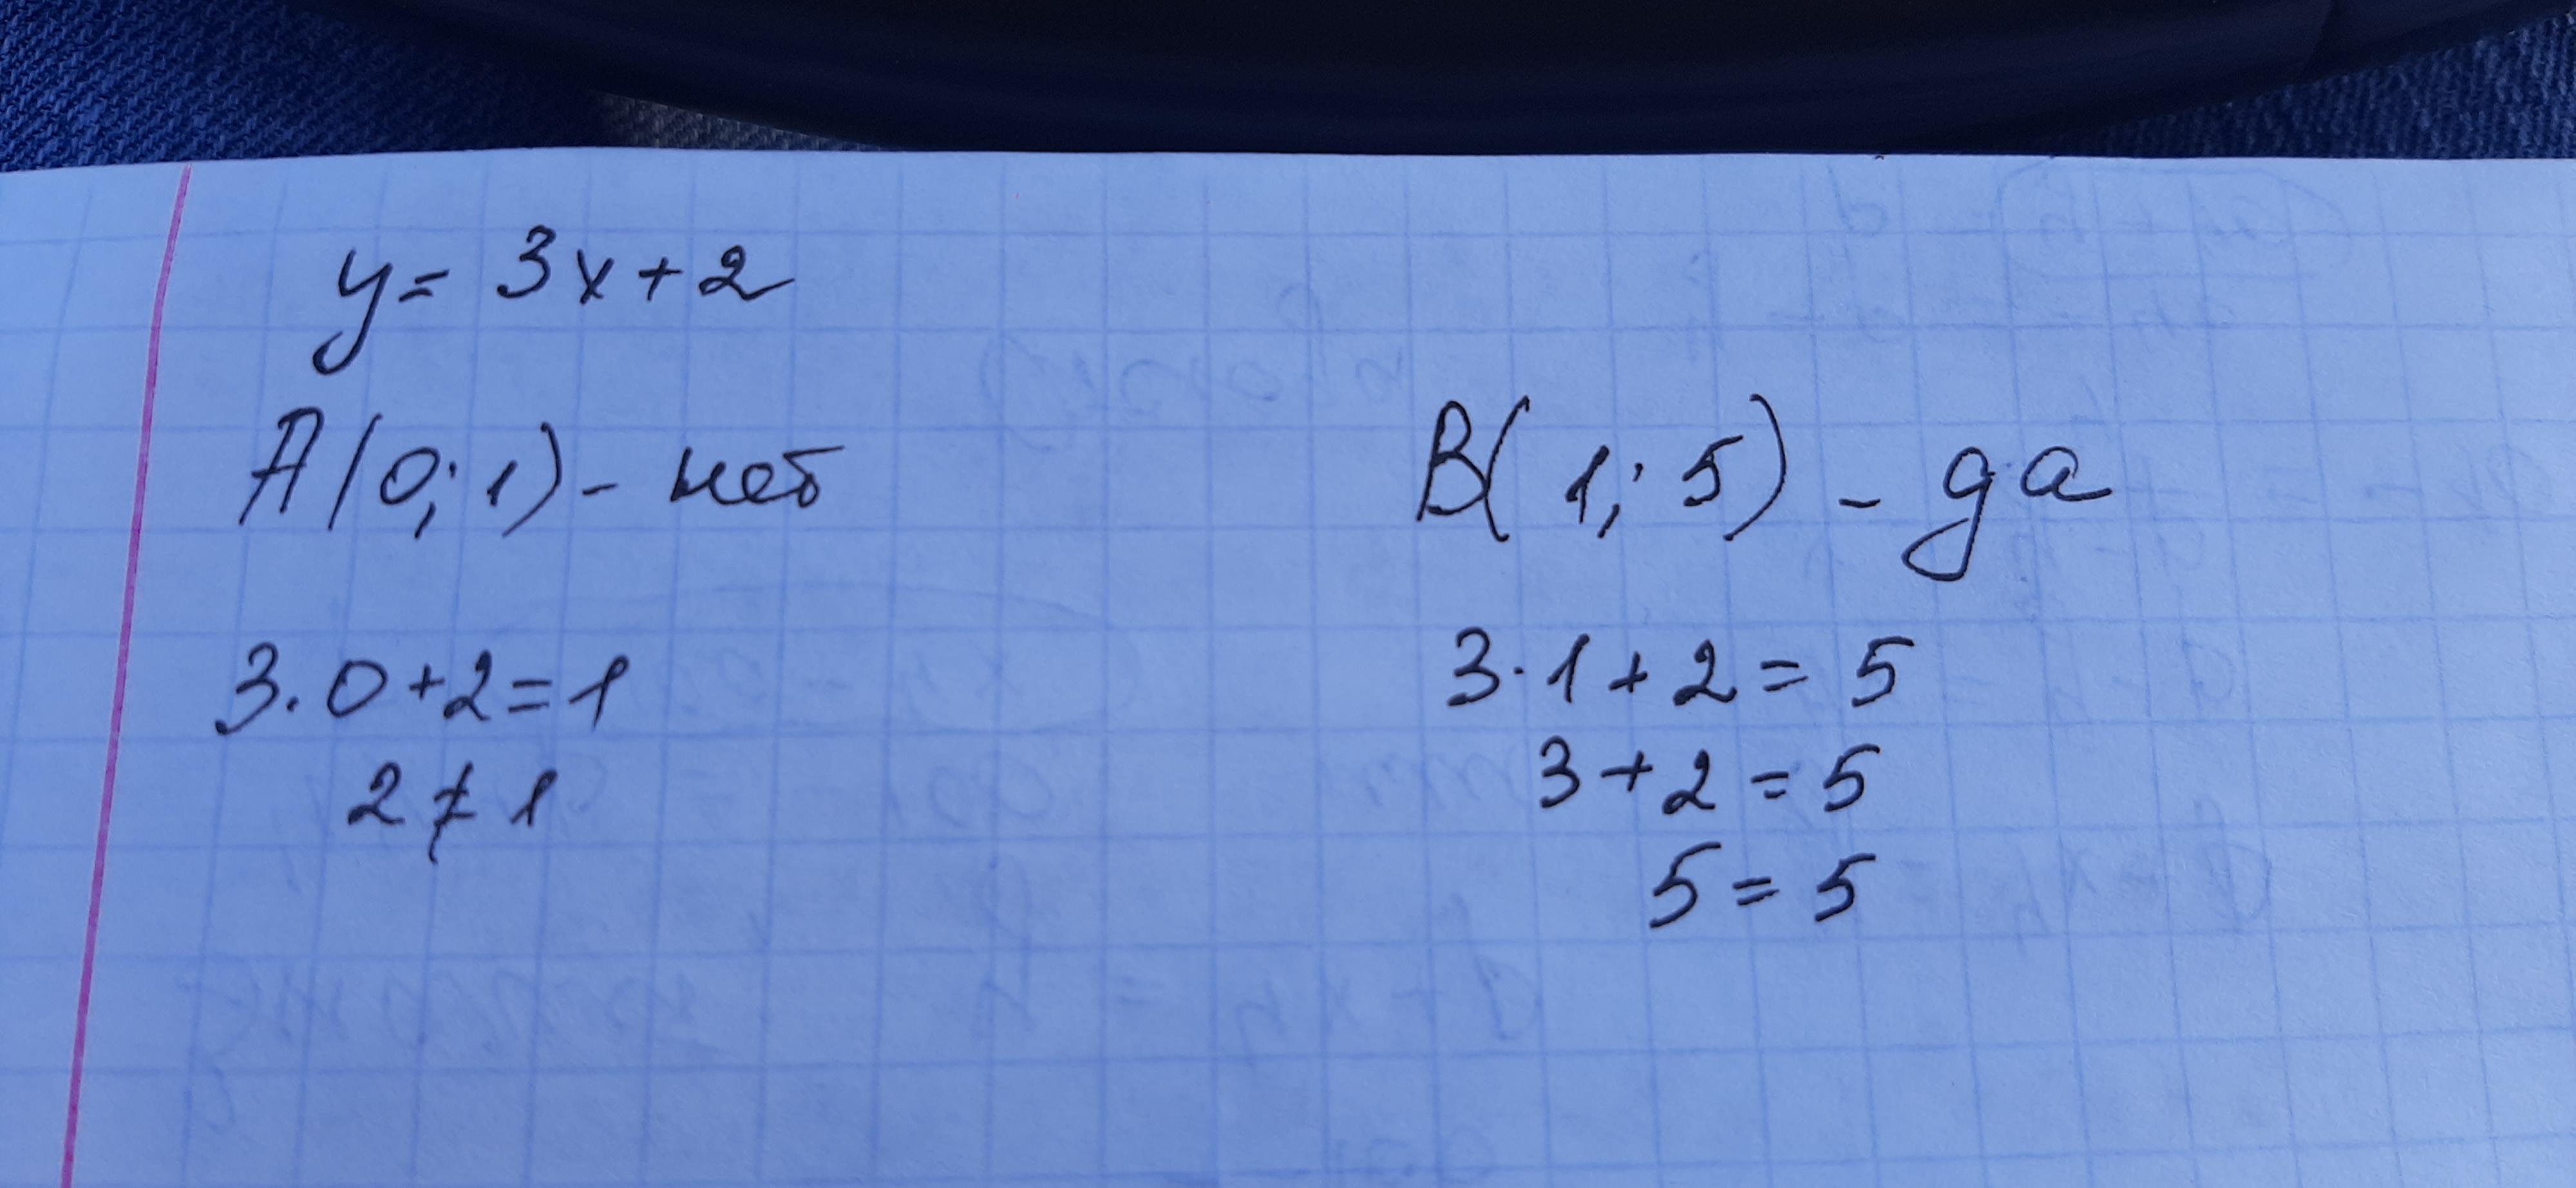 y = 3x + 2
A(0; 1) - нет
3 · 0 + 2 = 1
2 ≠ 1
B(1; 5) - да
3 · 1 + 2 = 5
3 + 2 = 5
5 = 5